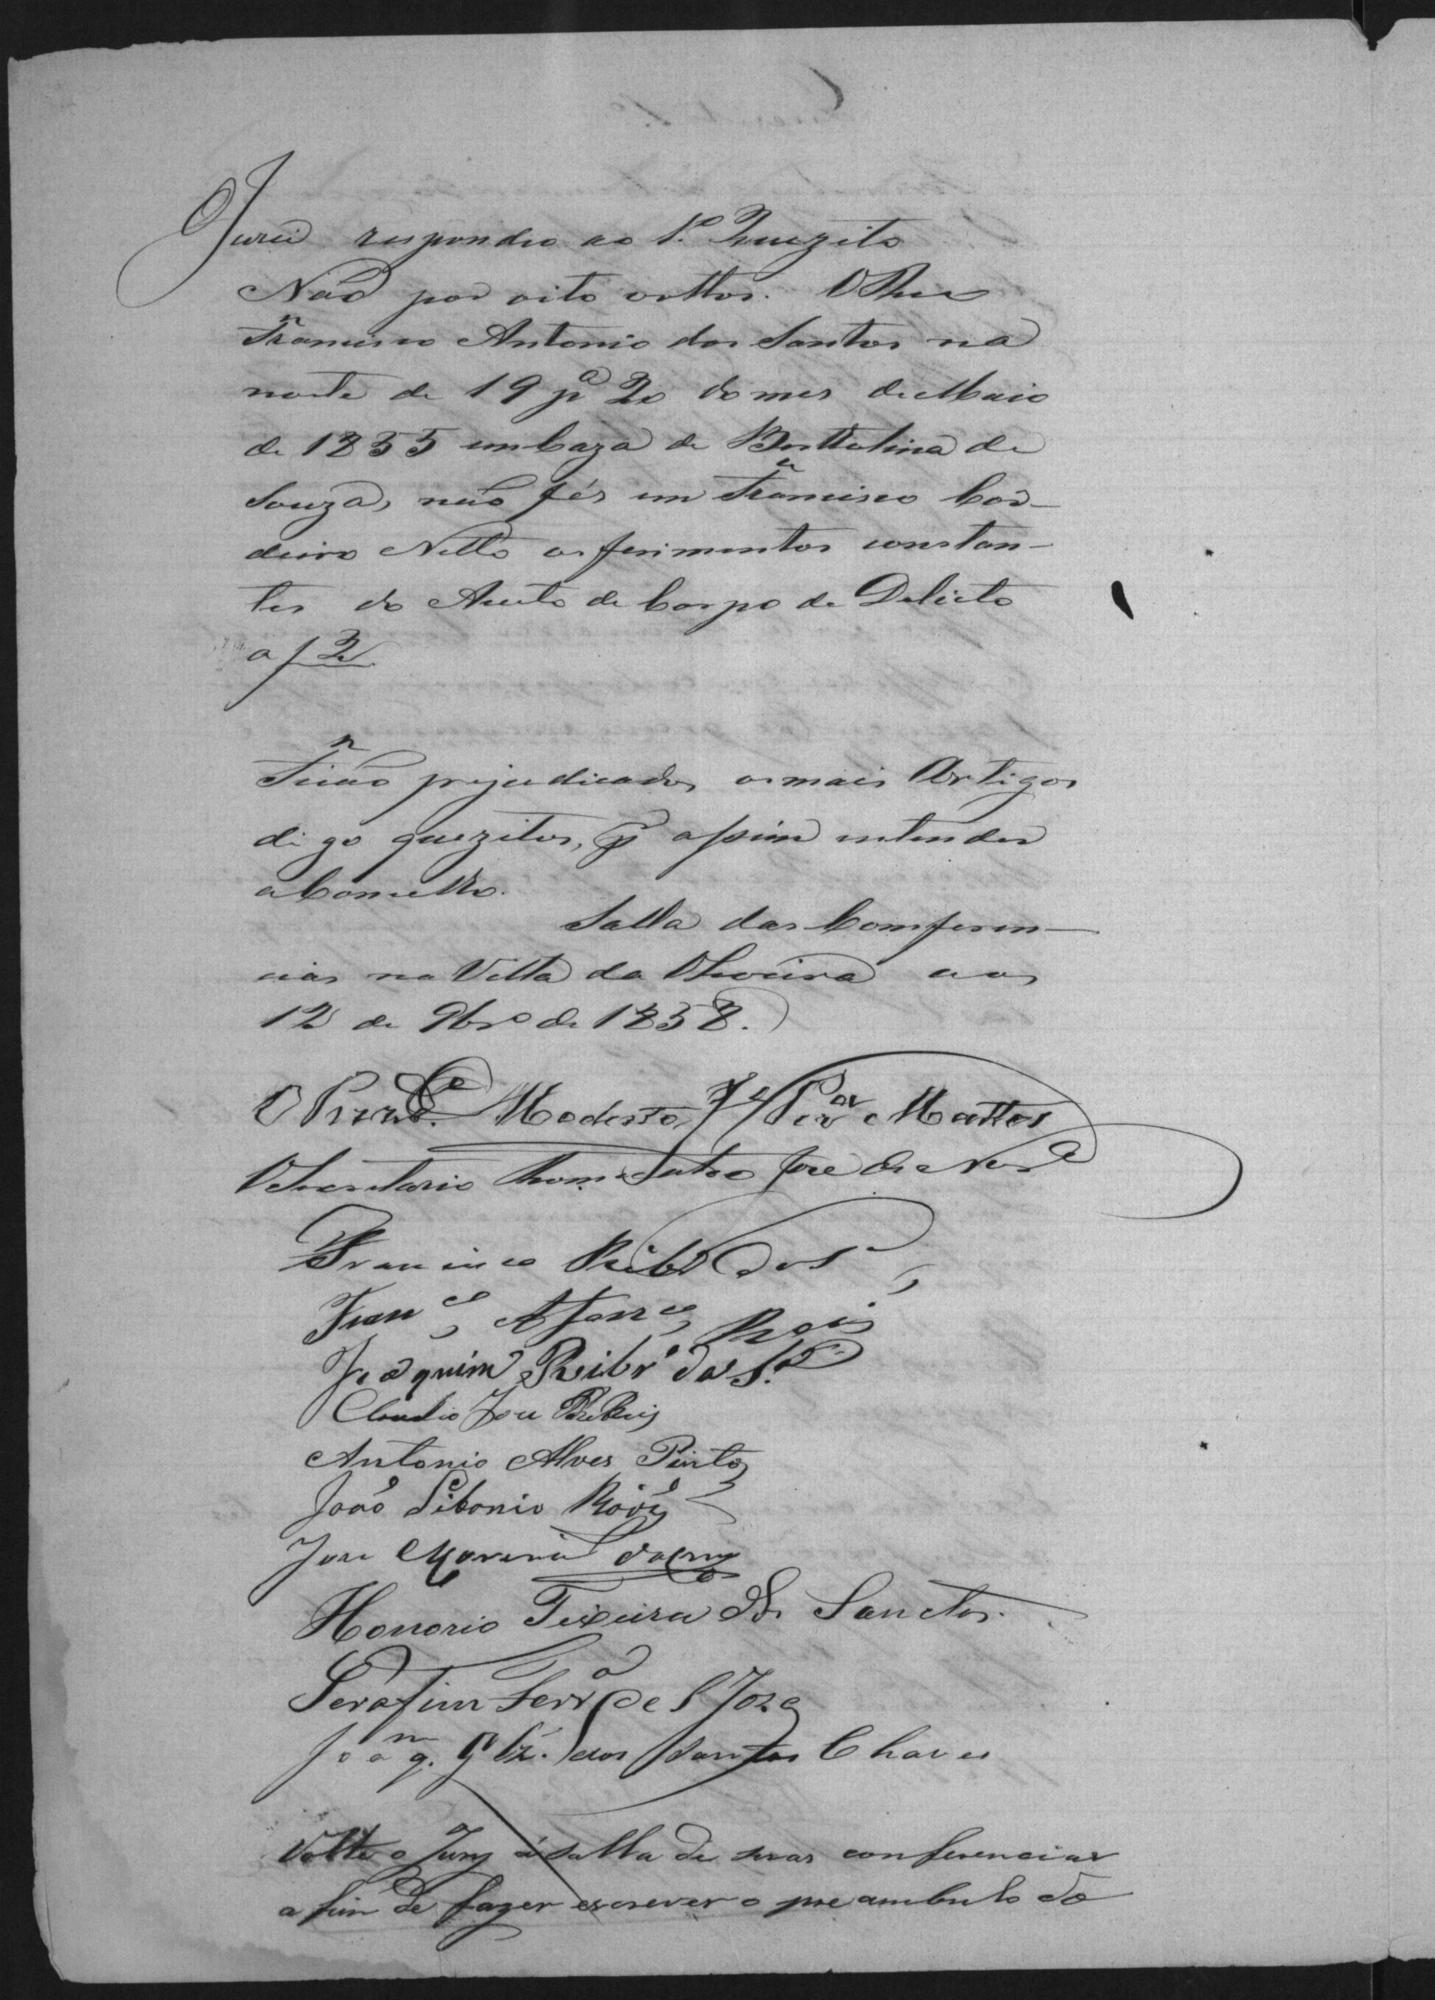 O Jurei respondeo ao 1º Quezito
Não por oito vottos. O Reu
Francisco Antonio dos Santos na
noite de 19 pª 20 do mes de Maio
de 1855 em Caza de Berttolina de
Souza, não fés em Francisco Cor-
deiro Netto os ferimentos constan-
tes do Auto de Corpo de Delicto
a f 2
Ficão prejudicados os mais Artigos
digo quezitos, p assim entender
o Concelho.
Salla das Comferen-
cias na Villa da Oliveira aos
12 de 9bro de 1858.
O Prezde. Modesto Je Perª Mattos
O Secretario José de
Francisco Ribº dos
Franco Reis
Joaquim Ribrº da Sª
Claudio Jose
Antonio Alves Pinto
João Libonio
Jose Moreira
Honorio Teixeira dos Sanctos.
Serafim Ferrª de S José
Joaqm. dos Santos Chaves
Volte o Jury á salla de suas conferencias
a fim de fazer escrever o preambulo do